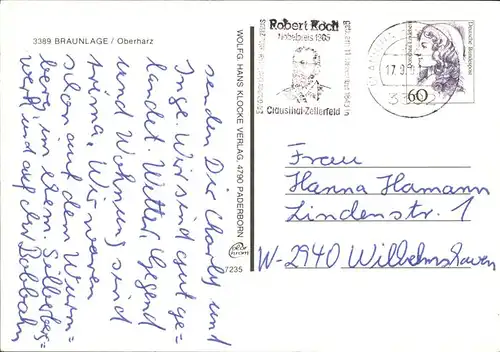 3389 BRAUNLAGE / Oberharz
senden Dir Charly und
Inge. Wir sind gut ge=
landet. Wetter, Gegend
und Wohnung sind
prima. Wir waren
schon auf dem Wurm=
berg, im ehem. Silberberg=
werk und auf der Bobbahn
WOLFG. HANS KLOCKE VERLAG, 4790 PADERBORN
7235
Robert Koch
Nobelpreis 1905
Clausthal-Zellerfeld
17.9.
Deutsche Bundespost
60
Frau
Hanna Hamann
Lindenstr. 1
W-2940 Wilhelmshaven